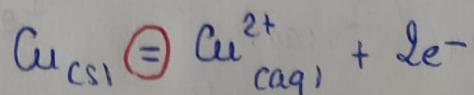 Cu(s) = Cu²⁺(aq) + 2e⁻